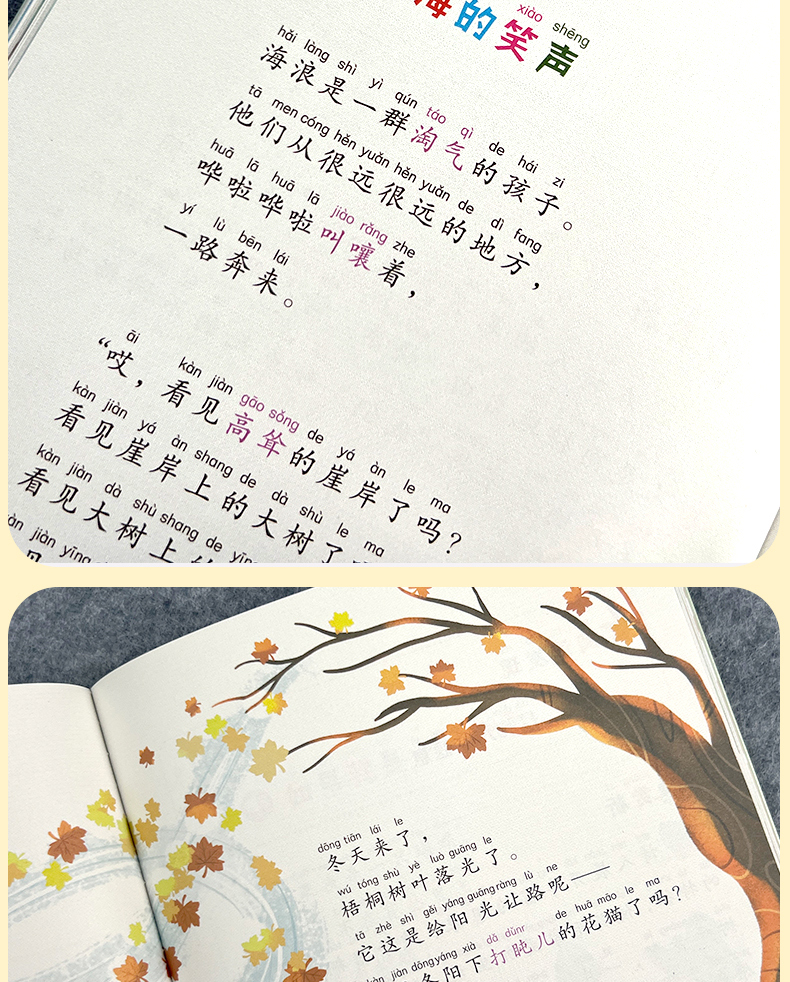 xiào shēng
海的笑声
hǎi làng shì yì qún táo qì de hái zi
海浪是一群淘气的孩子。
tā men cóng hěn yuǎn hěn yuǎn de dì fang
他们从很远很远的地方，
huā lā huā lā jiào rǎng zhe
哗啦哗啦叫嚷着，
yí lù bēn lái
一路奔来。
āi kàn jiàn gāo sǒng de yá àn le ma
“哎，看见高耸的崖岸了吗？
kàn jiàn yá àn shang de dà shù le ma
看见崖岸上的大树了吗？
kàn jiàn dà shù shang de
看见大树上的
jiàn yīng
见
dōng tiān lái le
冬天来了，
wú tóng shù yè luò guāng le
梧桐树叶落光了。
tā zhè shì gěi yáng guāng ràng lù ne
它这是给阳光让路呢——
kàn jiàn dōng yáng xià dǎ dǔnr de huā māo le ma
冬阳下打盹儿的花猫了吗？